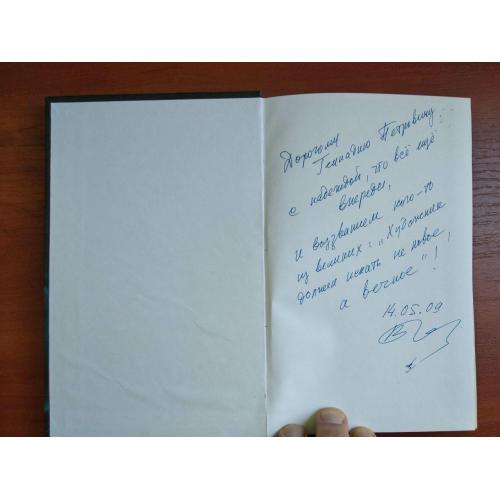 Дорогому
Геннадию Петровичу
с надеждой, что всё ещё
впереди,
и воззванием кого-то
из великих: „Художник
должен искать не новое,
а вечное"!
14.05.09